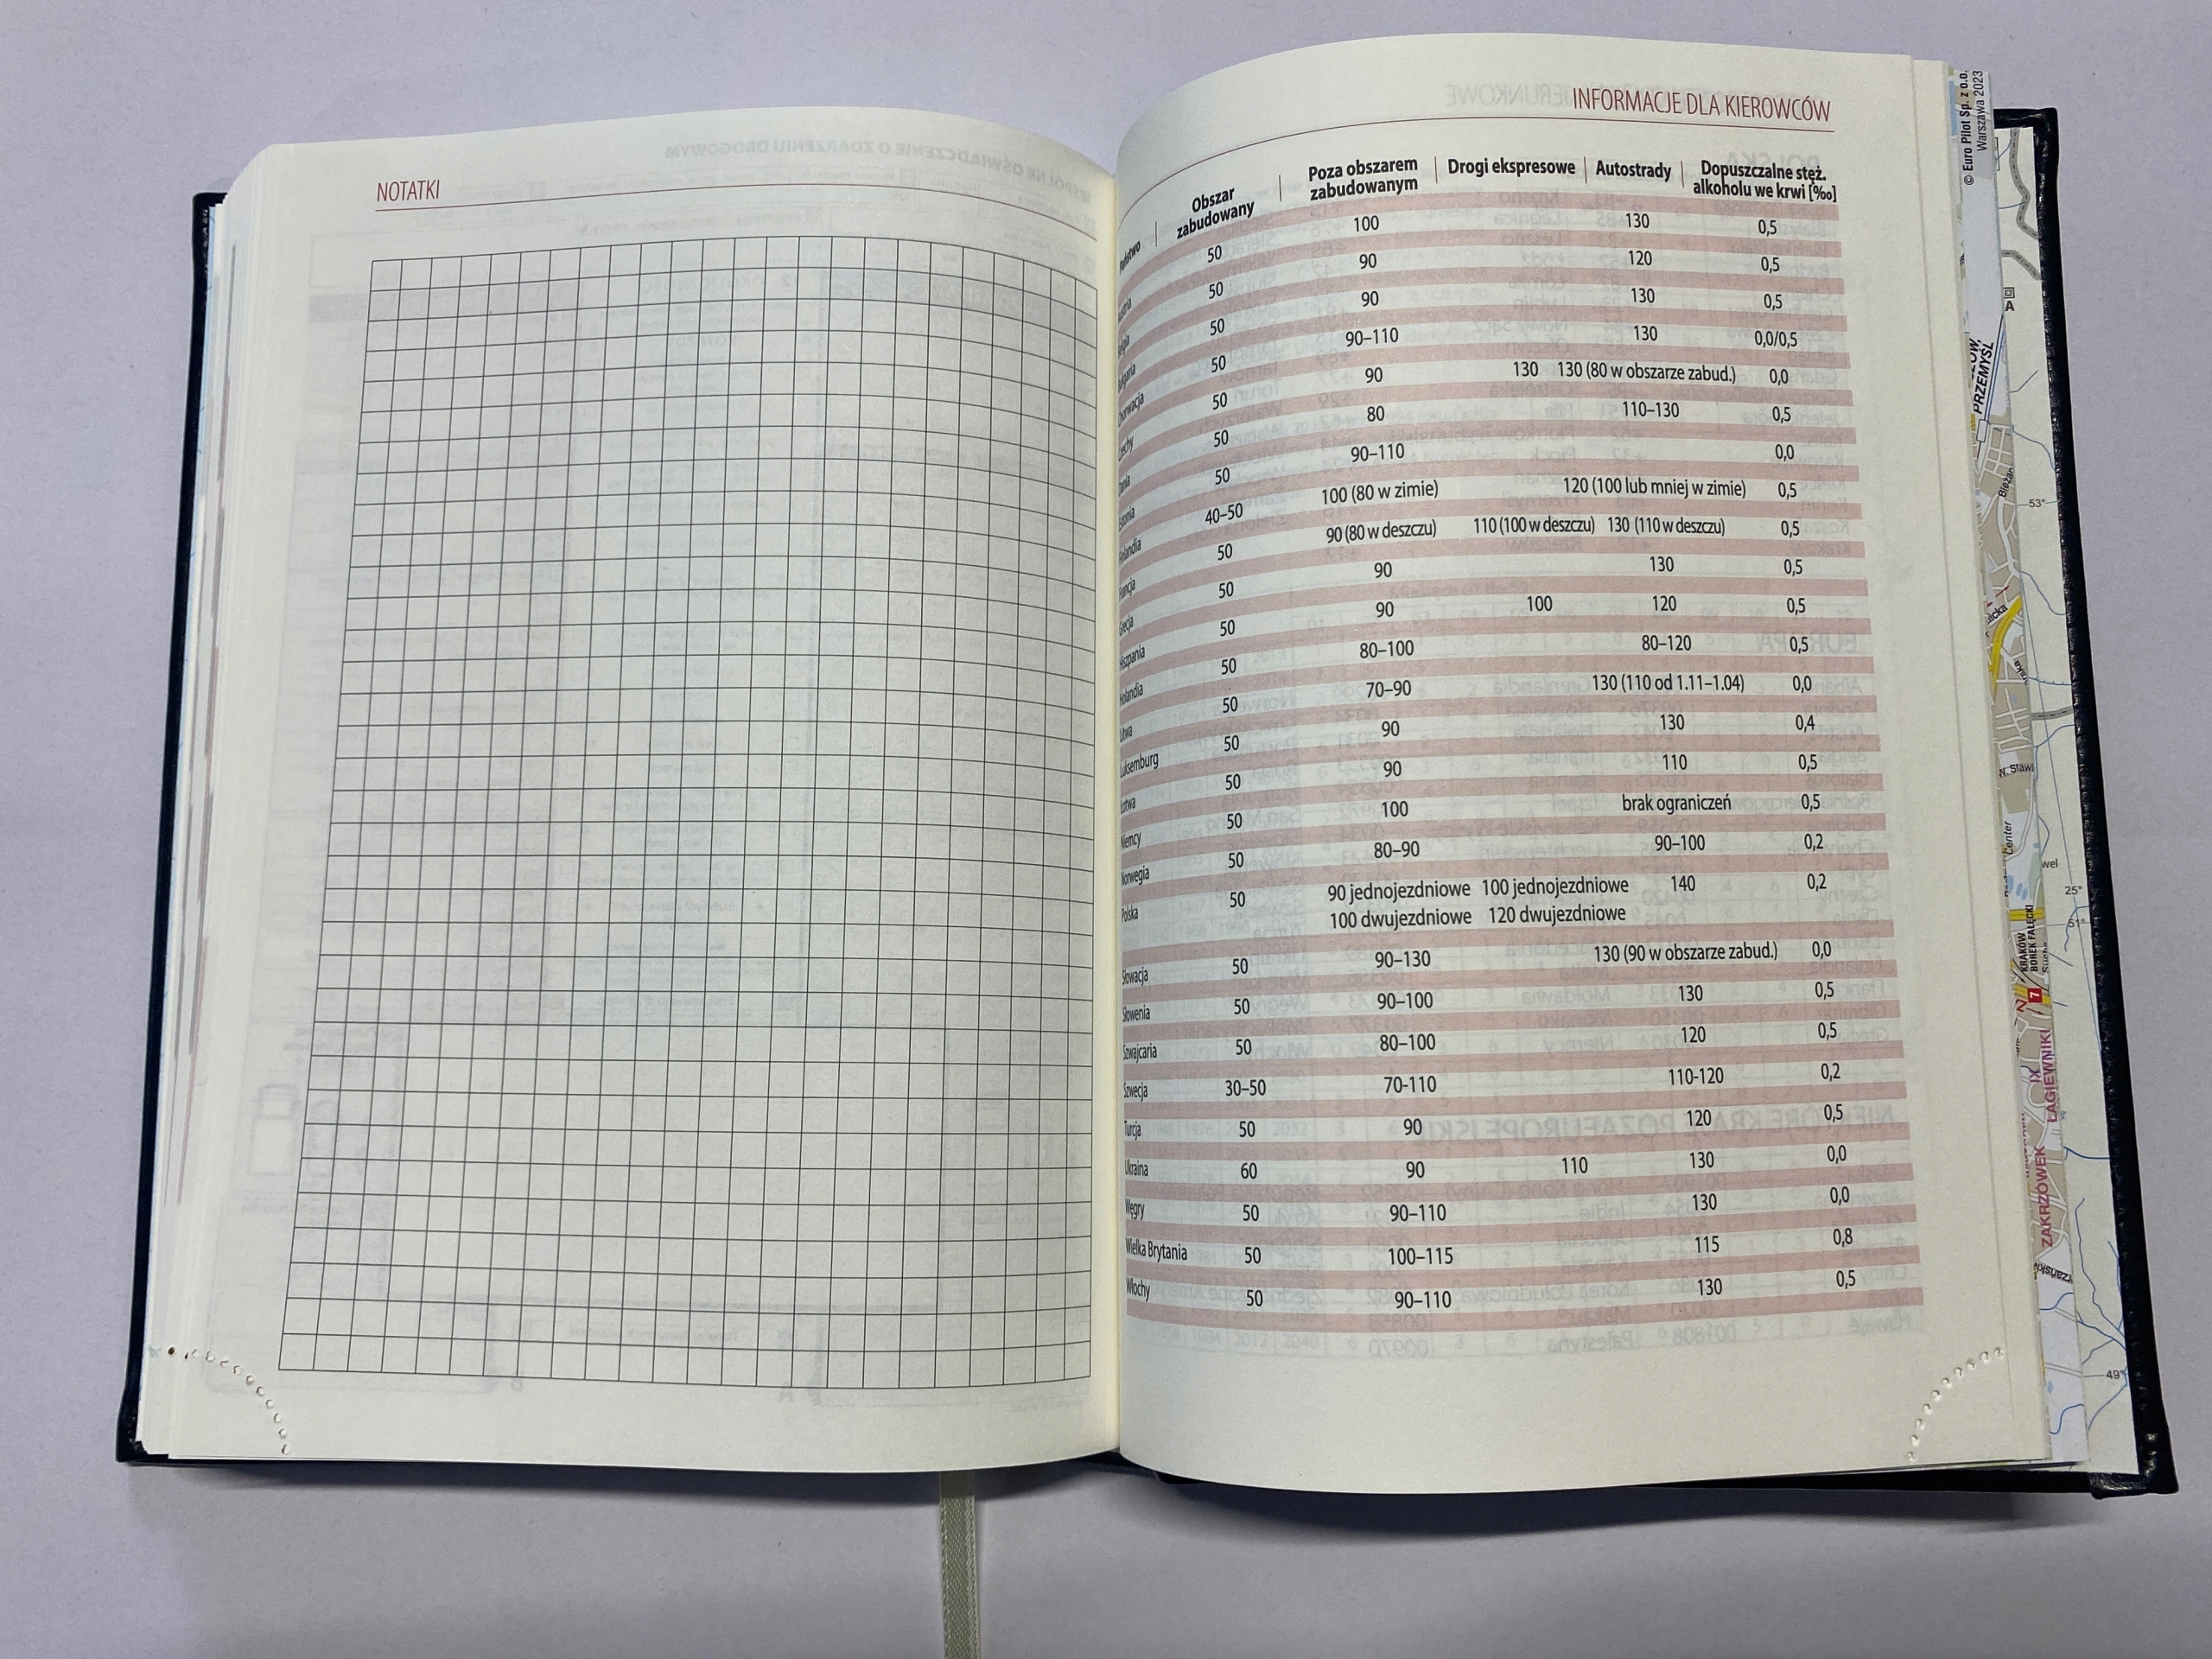 NOTATKI
INFORMACJE DLA KIEROWCÓW
Państwo Obszar zabudowany Poza obszarem zabudowanym Drogi ekspresowe Autostrady Dopuszczalne stęż. alkoholu we krwi [‰]
50 100 130 0,5
50 90 120 0,5
50 90 130 0,5
Chorwacja 50 90–110 130 0,0/0,5
Czechy 50 90 130 130 (80 w obszarze zabud.) 0,0
Dania 50 80 110–130 0,5
Estonia 50 90–110 0,0
Finlandia 40–50 100 (80 w zimie) 120 (100 lub mniej w zimie) 0,5
Francja 50 90 (80 w deszczu) 110 (100 w deszczu) 130 (110 w deszczu) 0,5
Grecja 50 90 130 0,5
Hiszpania 50 90 100 120 0,5
Holandia 50 80–100 80–120 0,5
Litwa 50 70–90 130 (110 od 1.11–1.04) 0,0
Luksemburg 50 90 130 0,4
Łotwa 50 90 110 0,5
Niemcy 50 100 brak ograniczeń 0,5
Norwegia 50 80–90 90–100 0,2
Polska 50 90 jednojezdniowe 100 jednojezdniowe 140 0,2
100 dwujezdniowe 120 dwujezdniowe
Słowacja 50 90–130 130 (90 w obszarze zabud.) 0,0
Słowenia 50 90–100 130 0,5
Szwajcaria 50 80–100 120 0,5
Szwecja 30–50 70-110 110-120 0,2
Turcja 50 90 120 0,5
Ukraina 60 90 110 130 0,0
Węgry 50 90–110 130 0,0
Wielka Brytania 50 100–115 115 0,8
Włochy 50 90–110 130 0,5
© Euro Pilot Sp. z o.o.
Warszawa 2023
A
PRZEMYŚL
53°
Center
25°
51°
KRAKÓW
BOREK FAŁĘCKI
7
IX
ŁAGIEWNIKI
ZAKRZÓWEK
49°